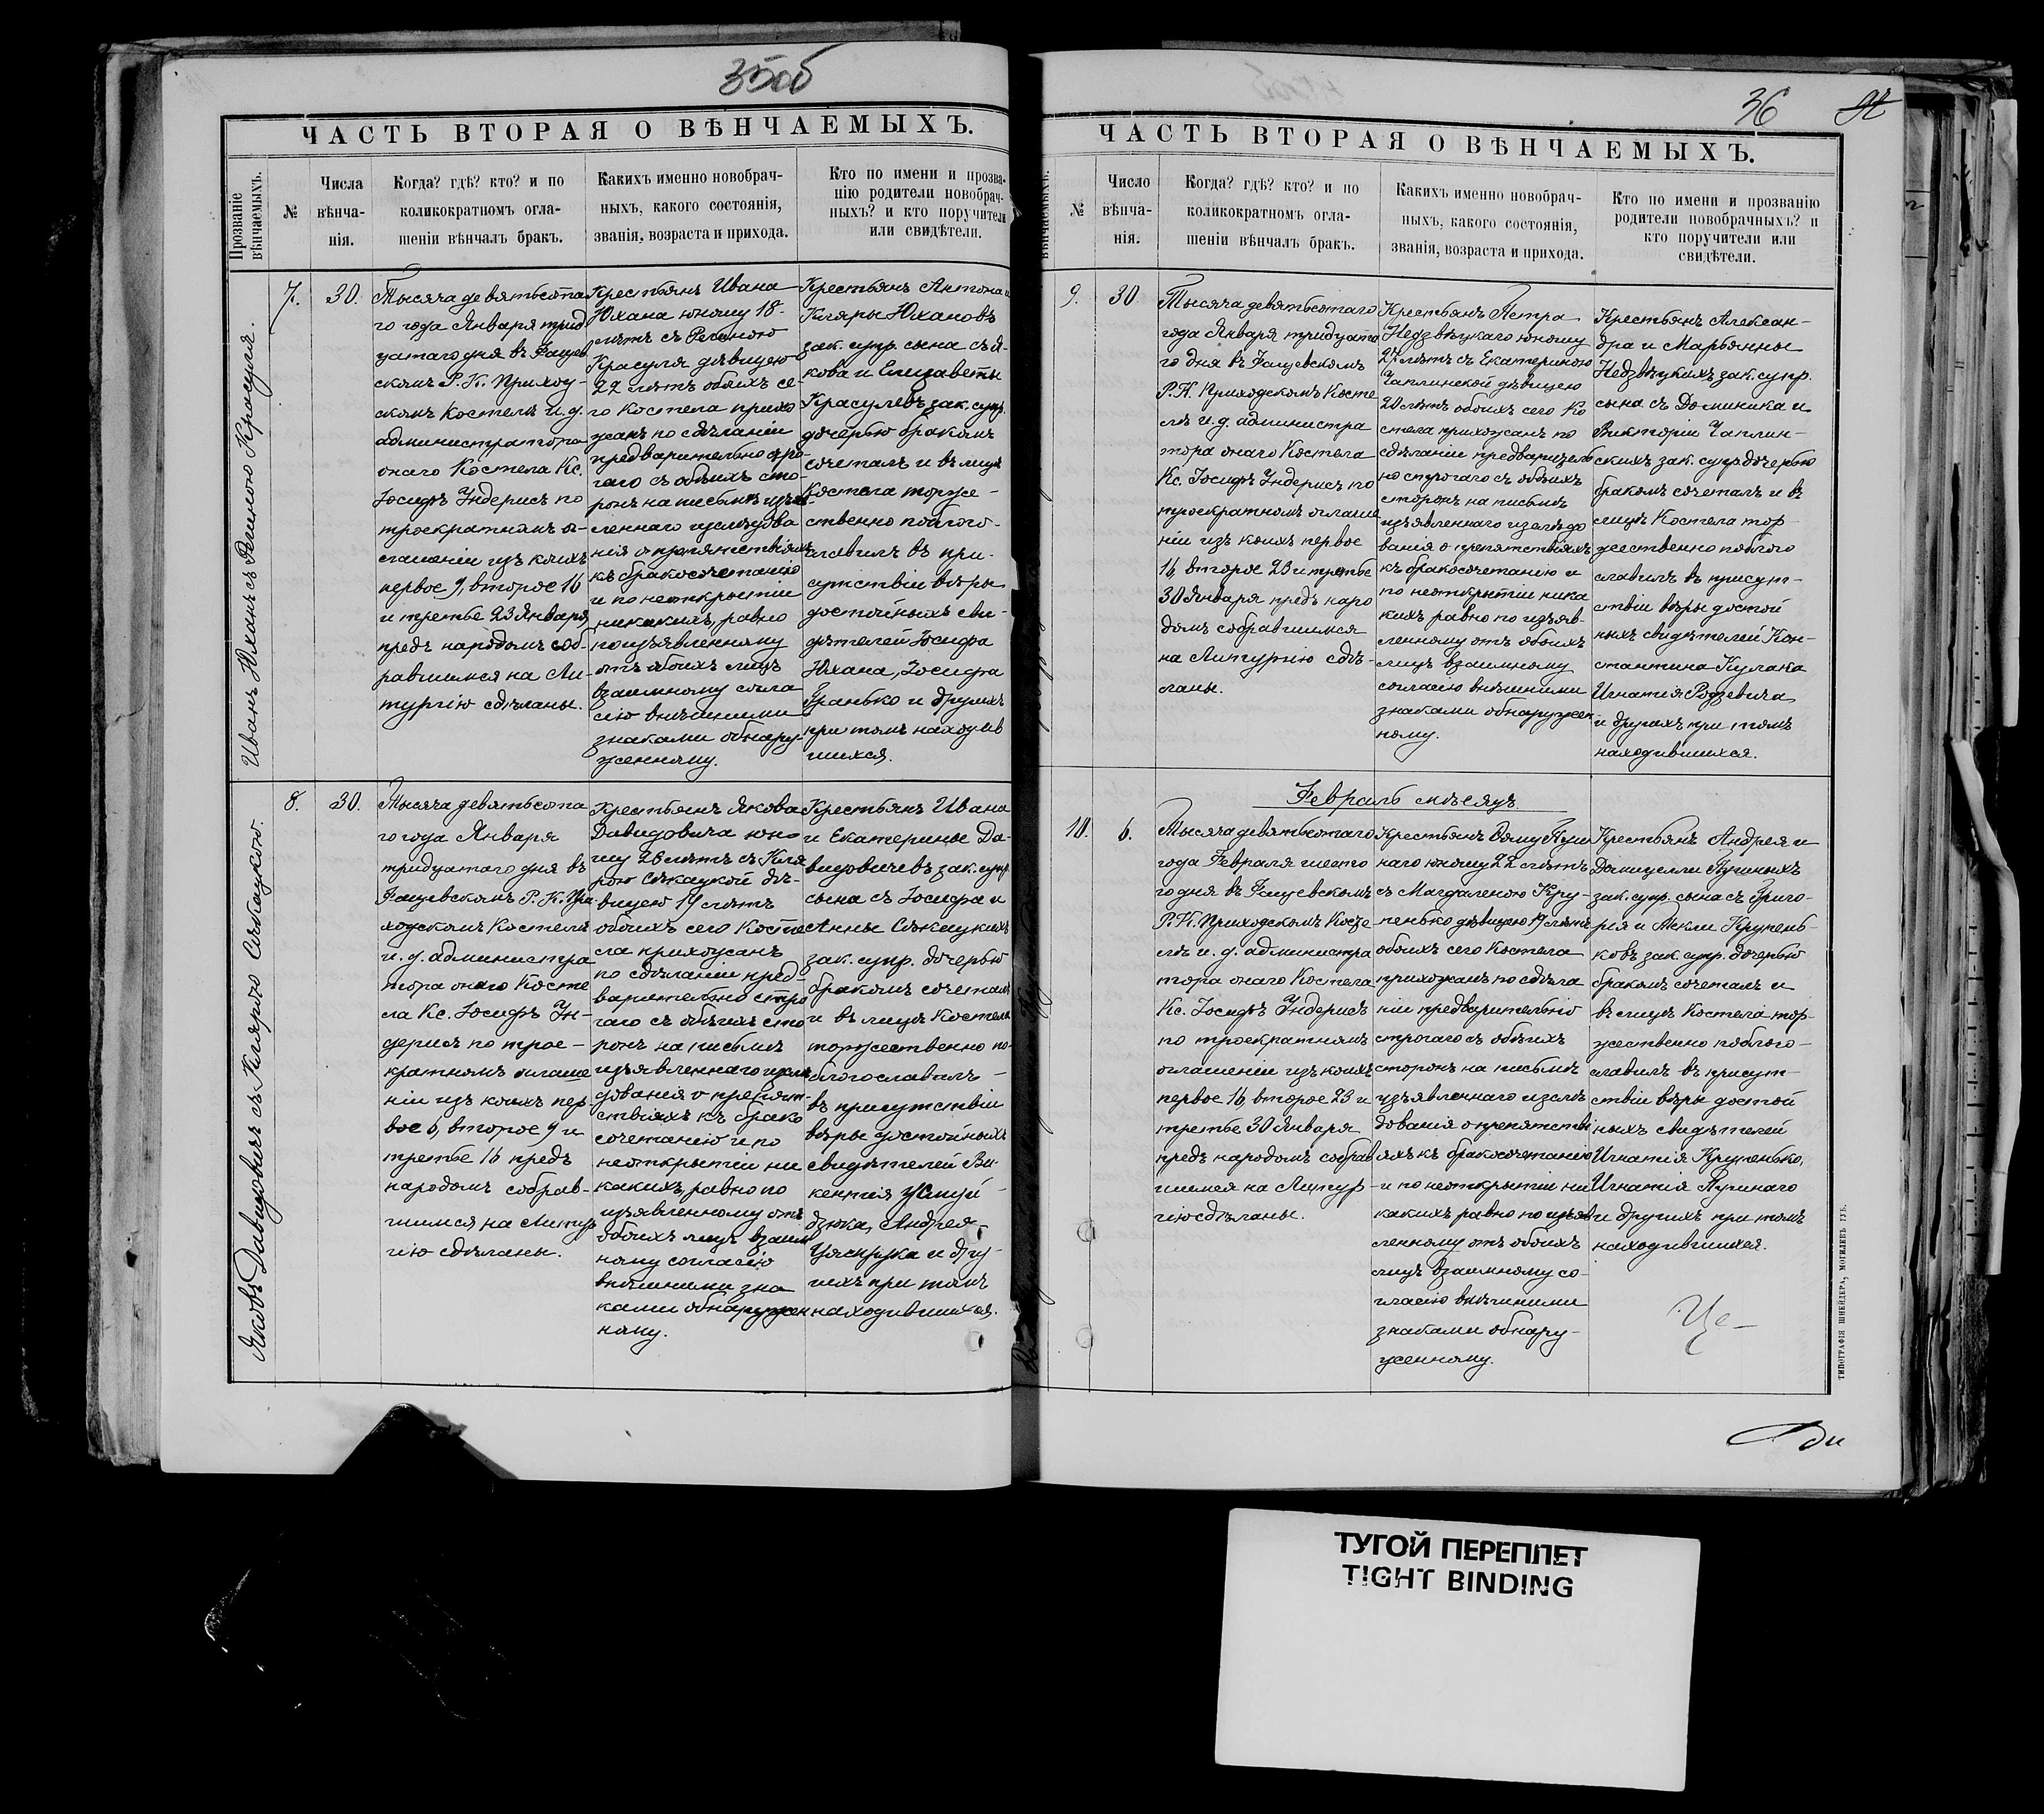 35об
ЧАСТЬ ВТОРАЯ О ВѢНЧАЕМЫХЪ.
Прозваніе
вѣнчаемыхъ.
№
Числа
вѣнча-
нія.
Когда? гдѣ? кто? и по
коликократномъ огла-
шеніи вѣнчалъ бракъ.
Какихъ именно новобрач-
ныхъ, какого состоянія,
званія, возраста и прихода.
Кто по имени и прозва-
нію родители новобрач-
ныхъ? и кто поручители
или свидѣтели.
Иванъ Юханъ съ Региною Красуля.
7.
30.
Тысяча девятьсота
го года Января трид
цатаго дня въ Фащев
скомъ Р. К. Приход-
скомъ Костелѣ и. д.
администратора
онаго Костела Кс.
Іосифъ Ундерисъ по
троекратномъ о-
глашеніи изъ коихъ
первое 9, второе 16
и третье 23 Января
предъ народомъ соб-
равшимся на Ли-
тургію сдѣланы.
Крестьянъ Ивана
Юхана юношу 18-
лѣтъ съ Региною
Красуля дѣвицею
22 лѣтъ обоихъ се-
го Костела прихо
жанъ по сдѣланіи
предварительно стро-
гаго съ обѣихъ сто-
ронъ на письмѣ изъяв
леннаго изслѣдова
нія о препятствіяхъ
къ бракосочетанію
и по неоткрытіи
никакихъ, равно
по изъявленному
отъ обоихъ лицъ
взаимному согла
сію внѣшними
знаками обнару-
женному.
Крестьянъ Антона и
Кляры Юхановъ
зак. супр. сына съ Я-
кова и Елизаветы
Красулевъ зак. супр.
дочерью бракомъ
сочеталъ и въ лицѣ
Костела торже-
ственно поблаго-
славилъ въ при-
сутствіи вѣры
достойныхъ сви-
дѣтелей Іосифа
Юхана, Іосифа
Гранько и другихъ
при томъ находив
шихся.
Яковъ Давидовичъ съ Клярою Сѣкацкою.
8.
30.
Тысяча девятьсота
го года Января
тридцатаго дня въ
Фащевскомъ Р. К. При
ходскомъ Костелѣ
и. д. администра
тора онаго Косте
ла Кс. Іосифъ Ун-
дерисъ по трое-
кратномъ оглаше
ніи изъ коихъ пер-
вое 6, второе 9 и
третье 16 предъ
народомъ собрав-
шимся на Литур
гію сдѣланы.
Крестьянъ Якова
Давидовича юно
шу 26 лѣтъ съ Кля
рою Сѣкацкой дѣ-
вицею 19 лѣтъ
обоихъ сего Косте
ла прихожанъ
по сдѣланіи пред-
варительно стро
гаго съ обѣихъ сто
ронъ на письмѣ
изъявленнаго изслѣ
дованія о препят-
ствіяхъ къ брако
сочетанію и по
неоткрытіи ни
какихъ, равно по
изъявленному отъ
обоихъ лицъ взаим
ному согласію
внѣшними зна
ками обнаружен
ному.
Крестьянъ Ивана
и Екатерины Да-
видовичевъ зак. супр.
сына съ Іосифа и
Анны Сѣкацкихъ
зак. супр. дочерью
бракомъ сочеталъ
и въ лицѣ Костела
торжественно по-
благославилъ
въ присутствіи
вѣры достойныхъ
свидѣтелей Ви-
кентія
дзюка, Андрея
и дру-
гихъ при томъ
находившихся.
36
ЧАСТЬ ВТОРАЯ О ВѢНЧАЕМЫХЪ.
вѣнчаемыхъ.
№
Число
вѣнча-
нія.
Когда? гдѣ? кто? и по
коликократномъ огла-
шеніи вѣнчалъ бракъ.
Какихъ именно новобрач-
ныхъ, какого состоянія,
званія, возраста и прихода.
Кто по имени и прозванію
родители новобрачныхъ? и
кто поручители или
свидѣтели.
9.
30
Тысяча девятьсотаго
года Января тридцата
го дня въ Фащевскомъ
Р. К. Приходскомъ Косте
лѣ и. д. администра
тора онаго Костела
Кс. Іосифъ Ундерисъ по
троекратномъ оглаше
ніи изъ коихъ первое
16, второе 23 и третье
30 Января предъ наро
домъ собравшимся
на Литургію сдѣ-
ланы.
Крестьянъ Петра
Недзвѣцкаго юношу
27 лѣтъ съ Екатериною
Чаплинской дѣвицею
20 лѣтъ обоихъ сего Ко
стела прихожанъ по
сдѣланіи предваритель
но строгаго съ обѣихъ
сторонъ на письмѣ
изъявленнаго изслѣдо
ванія о препятствіяхъ
къ бракосочетанію и
по неоткрытіи ника
кихъ равно по изъяв-
ленному отъ обоихъ
лицъ взаимному
согласію внѣшними
знаками обнаружен
ному.
Крестьянъ Алексан-
дра и Марьянны
Недзвѣцкихъ зак. супр.
сына съ Доминика и
Викторіи Чаплин-
скихъ зак. супр. дочерью
бракомъ сочеталъ и въ
лицѣ Костела тор-
жественно поблаго
славилъ въ присут-
ствіи вѣры достой
ныхъ свидѣтелей Кон-
стантина Кулака
Игнатія Родзевича
и другихъ при томъ
находившихся.
Февраль мѣсяцъ
10.
6.
Тысяча девятьсотаго
года Февраля шесто
го дня въ Фащевскомъ
Р. К. Приходскомъ Косте
лѣ и. д. администра
тора онаго Костела
Кс. Іосифъ Ундерисъ
по троекратномъ
оглашеніи изъ коихъ
первое 16, второе 23 и
третье 30 Января
предъ народомъ собрав
шимся на Литур-
гію сдѣланы.
Крестьянъ Ѳому
наго юношу 22 лѣтъ
съ Магдаленою Кру-
пенько дѣвицею 19 лѣтъ
обоихъ сего Костела
прихожанъ по сдѣла
ніи предварительно
строгаго съ обѣихъ
сторонъ на письмѣ
изъявленнаго изслѣ
дованія о препятстві
яхъ къ бракосочетанію
и по неоткрытіи ни
какихъ равно по изъяв
ленному отъ обоихъ
лицъ взаимному со-
гласію внѣшними
знаками обнару-
женному.
Крестьянъ Андрея и
Домицелли
зак. супр. сына съ Григо-
рія и Теклы Крупень-
ковъ зак. супр. дочерью
бракомъ сочеталъ и
въ лицѣ Костела тор-
жественно поблаго-
славилъ въ присут-
ствіи вѣры достой
ныхъ свидѣтелей
Игнатія Крупенько,
Игнатія
и другихъ при томъ
находившихся.
Це-
ди
ТИПОГРАФІЯ ШНЕЙДЕРА, МОГИЛЕВЪ ГУБ.
ТУГОЙ ПЕРЕПЛЕТ
TIGHT BINDING